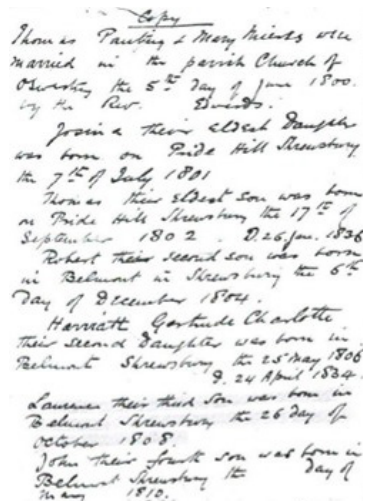 Copy
Thomas Panting & Mary Miers were
married in the parish Church of
Oswestry the 5th day of June 1800.
by the Rev. Edwards.
Josina their Eldest Daughter
was born on Pride Hill Shrewsbury
the 7th of July 1801
Thomas their Eldest son was born
on Pride Hill Shrewsbury the 17th of
September 1802. D. 26 Jan. 1836
Robert their second son was born
in Belmont in Shrewsbury the 6th
Day of December 1804.
Harriatt Gertrude Charlotte
their second Daughter was born in
Belmont Shrewsbury the 25 May 1806
D. 24 April 1834.
Laurence their third son was born in
Belmont Shrewsbury the 26 day of
October 1808.
John their fourth son was born in
Belmont Shrewsbury the Day of
May 1810.